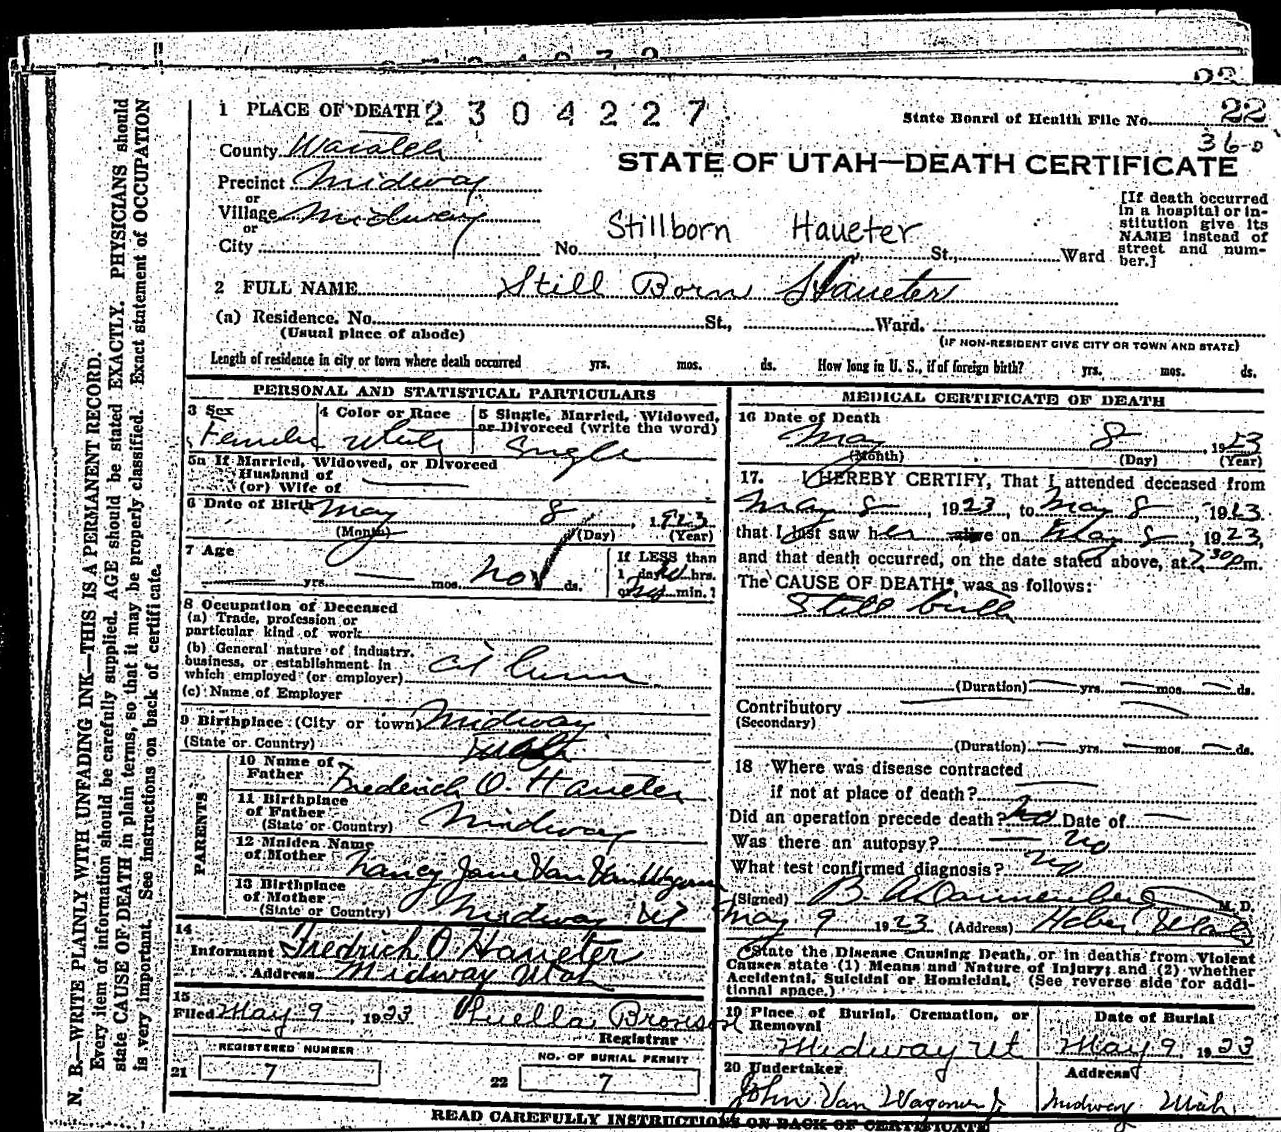 22
1 PLACE OF DEATH 2304227
State Board of Health File No. 22
36-0
County Wasatch
STATE OF UTAH—DEATH CERTIFICATE
Precinct Midway
or
Village Midway
or
City No. Stillborn Haueter St., Ward
[If death occurred
in a hospital or in-
stitution give its
NAME instead of
street and num-
ber.]
2 FULL NAME Still Born Haueter
(a) Residence. No. St., Ward.
(Usual place of abode)
(IF NON-RESIDENT GIVE CITY OR TOWN AND STATE)
Length of residence in city or town where death occurred yrs. mos. ds. How long in U. S., if of foreign birth? yrs. mos. ds.
PERSONAL AND STATISTICAL PARTICULARS
3 Sex
Female
4 Color or Race
White
5 Single, Married, Widowed,
or Divorced (write the word)
Single
5a If Married, Widowed, or Divorced
Husband of
(or) Wife of
6 Date of Birth May 8, 1923
(Month) (Day) (Year)
7 Age
yrs. mos. ds.
If LESS than
1 day hrs.
or min.?
8 Occupation of Deceased
(a) Trade, profession or
particular kind of work
(b) General nature of industry,
business, or establishment in
which employed (or employer) at home
(c) Name of Employer
9 Birthplace (City or town) Midway
(State or Country) Utah
PARENTS
10 Name of
Father Frederich O. Haueter
11 Birthplace
of Father Midway
(State or Country)
12 Maiden Name
of Mother Nancy Jane Van Wagoner
13 Birthplace
of Mother Midway Ut
(State or Country)
14
Informant Fredrich O. Haueter
Address Midway Utah
15
Filed May 9, 1923 Luella Bronson
Registrar
REGISTERED NUMBER
21 7
NO. OF BURIAL PERMIT
22 7
MEDICAL CERTIFICATE OF DEATH
16 Date of Death
May 8, 1923
(Month) (Day) (Year)
17. I HEREBY CERTIFY, That I attended deceased from
May 8, 1923, to May 8, 1923,
that I last saw her alive on May 8, 1923,
and that death occurred, on the date stated above, at 7:30 p.m.
The CAUSE OF DEATH* was as follows:
Still birth
(Duration) yrs. mos. ds.
Contributory
(Secondary)
(Duration) yrs. mos. ds.
18 Where was disease contracted
if not at place of death?
Did an operation precede death? No Date of
Was there an autopsy? No
What test confirmed diagnosis? No
(Signed) M. D.
May 9 1923 (Address) Heber Utah
*State the Disease Causing Death, or in deaths from Violent
Causes state (1) Means and Nature of Injury; and (2) whether
Accidental, Suicidal or Homicidal. (See reverse side for addi-
tional space.)
19 Place of Burial, Cremation, or
Removal
Midway Ut
Date of Burial
May 9, 1923
20 Undertaker
John Van Wagoner Jr.
Address
Midway Utah
READ CAREFULLY INSTRUCTIONS ON BACK OF CERTIFICATE
N. B.—WRITE PLAINLY WITH UNFADING INK—THIS IS A PERMANENT RECORD.
Every item of information should be carefully supplied. AGE should be stated EXACTLY. PHYSICIANS should
state CAUSE OF DEATH in plain terms, so that it may be properly classified. Exact statement of OCCUPATION
is very important. See instructions on back of certificate.